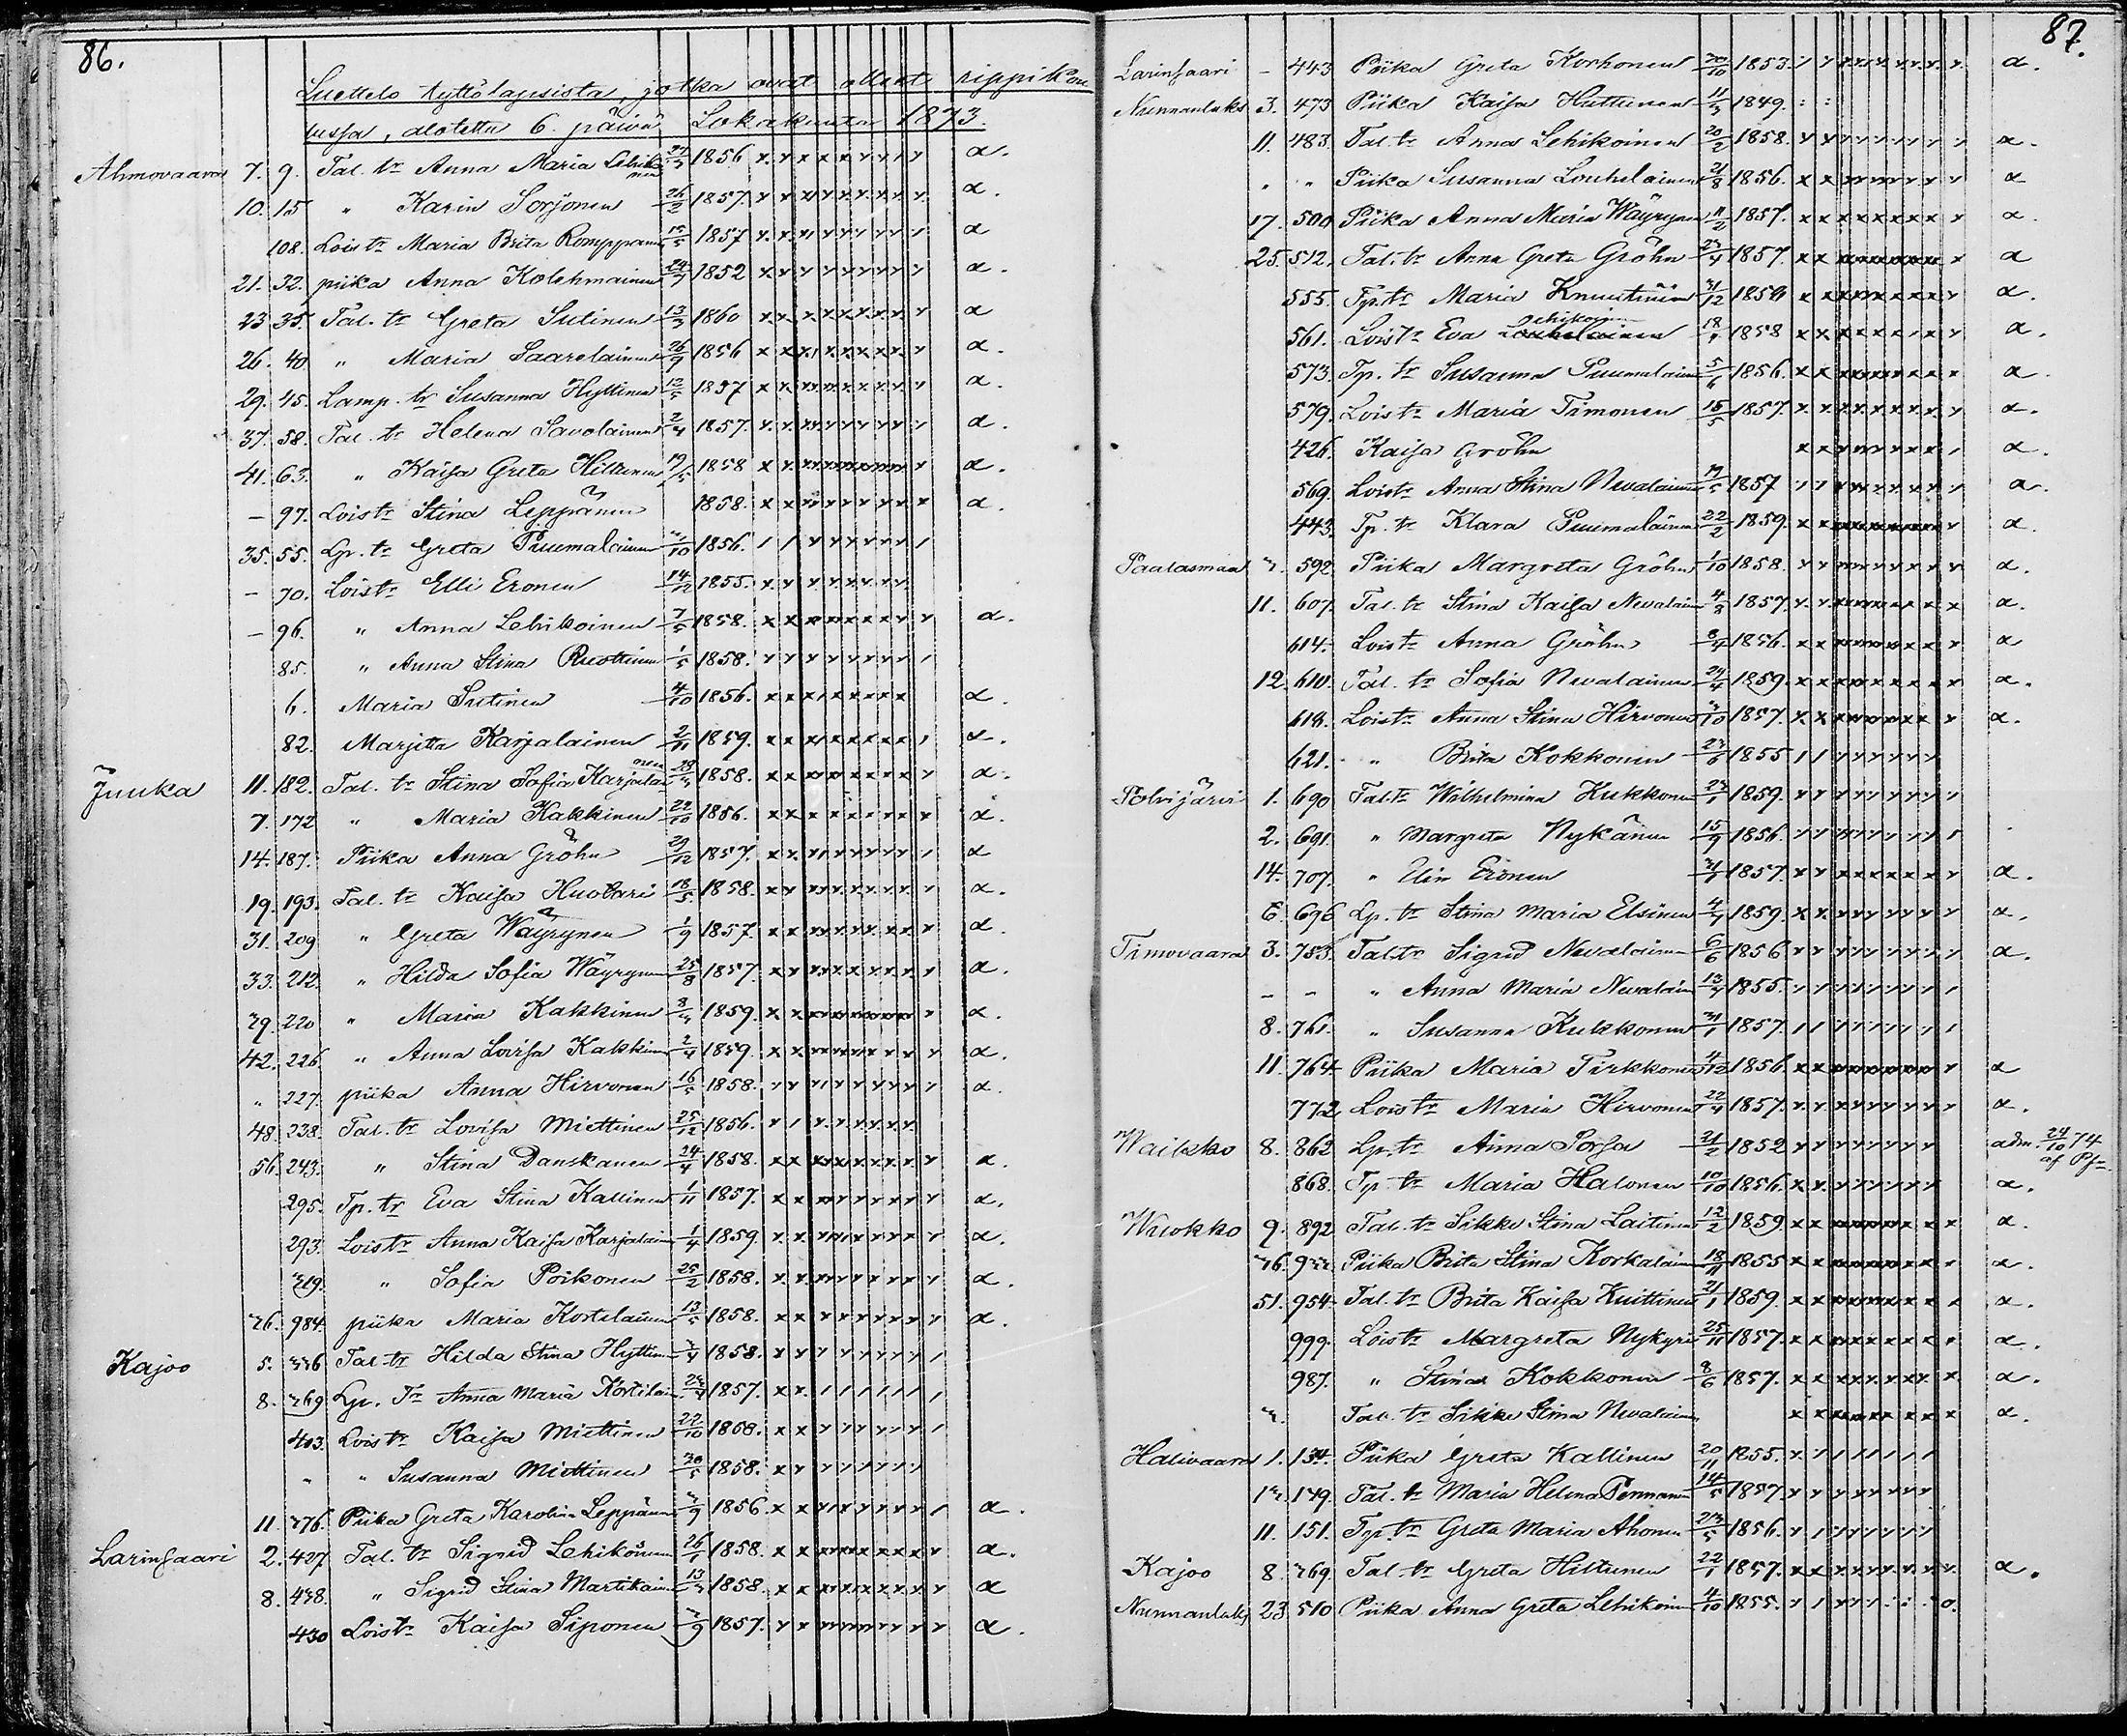 86.
Luettelo tyttölapsista, jotka ovat olleet rippikou
lussa, alotettu 6. päivä Lokakuuta 1873.
Ahmovaara 7. 9. Tal. tr Anna Maria Lehikoinen 1856 α.
10. 15 " Karin Sorjonen 26/2 1857. α.
108. Lois tr Maria Brita Romppanen 15/5 1857 α
21. 32. piika Anna Kolehmainen 1852 α.
23 35. Tal. tr Greta Sutinen 13/3 1860 α
26. 40 " Maria Saarelainen 26/9 1856 α.
29. 45. Lamp. tr Susanna Hyttinen 12/5 1857 α.
37. 58. Tal. tr Helena Savolainen 2/4 1857. α.
41. 63. " Kaisa Greta Hiltunen 1858 α.
– 97. Lois tr Stina Leppänen 1858. α.
35. 55. Lp. tr Greta Puumalainen 1856.
– 70. Lois tr Elli Eronen 14/12 1855.
– 96. " Anna Lehikoinen 7/5 1858. α.
85. " Anna Stina Ruottinen 1/5 1858.
6. Maria Sutinen 4/10 1856. α.
82. Marjetta Karjalainen 2/11 1859. α.
Juuka 11. 182. Tal. tr Stina Sofia Karjalainen 1858. α.
7. 172 " Maria Kakkinen 22/10 1856. α.
14. 187. Piika Anna Gröhn 29/12 1857. α
19. 193. Tal. tr Kaisa Huotari 18/5 1858. α.
31. 209 " Greta Wäyrynen 1/9 1857. α.
33. 212. " Hilda Sofia Wäyrynen 25/8 1857. α.
39. 220 " Maria Kakkinen 8/3 1859. α.
42. 226. " Anna Lovisa Kakkinen 2/4 1859. α.
" 227. piika Anna Hirvonen 16/5 1858. α.
48. 238. Tal. tr Lovisa Miettinen 25/12 1856.
56. 243. " Stina Danskanen 24/4 1858. α.
295. Tp. tr Eva Stina Kallinen 1/11 1857. α.
293. Lois tr Anna Kaisa Karjalainen 1/4 1859 α.
319. " Sofia Poikonen 25/2 1858. α.
36. 984. piika Maria Kortelainen 13/5 1858. α.
Kajoo 5. 336 Tal. tr Hilda Stina Hyttinen 1858.
8. 369 Lp. Tr Anna Maria Kortelainen 1857.
403. Lois tr Kaisa Miettinen 22/10 1858.
" " Susanna Miettinen 30/5 1858.
11. 376. Piika Greta Karolina Leppänen 3/9 1856. α.
Larinsaari 2. 427. Tal. tr Sigrid Lehikoinen 26/1 1858. α.
8. 438. " Sigrid Stina Martikainen 13/3 1858. α
430 Lois tr Kaisa Siponen 1857. α.
87.
Larinsaari – 443 Piika Greta Korhonen 1853. α.
Nunnanlaks 3. 473 Piika Kaisa Huttunen 11/3 1849.
11. 483. Tal. tr Anna Lehikoinen 20/2 1858. α.
" " Piika Susanna Louhelainen 21/8 1856. α
17. 500 Piika Anna Maria Wäyrynen 11/2 1857. α.
25. 512. Tal. tr Anna Greta Gröhn 1857. α
555. Tp. tr Maria Knuutinen 31/12 1858 α.
561. Lois tr Eva Louhelainen ehikoinen 1858 α.
573. Tp. tr Susanna Puumalainen 5/6 1856. α
579. Lois tr Maria Timonen 15/5 1857. α.
426. Kaisa Gröhn α.
569. Lois tr Anna Stina Nevalainen 1857 α.
443. Tp. tr Klara Puumalainen 22/2 1859. α.
Paalasmaa 3. 592. Piika Margreta Gröhn 1/10 1858. α.
11. 607. Tal. tr Stina Kaisa Nevalainen 1857. α.
614. Lois tr Anna Gröhn 8/4 1856. α
12. 610. Tal. tr Sofia Nevalainen 24/4 1859. α.
618. Lois tr Anna Stina Hirvonen 1857. α.
621. " Brita Kokkonen 1855
Polvijärvi 1. 690 Tal. tr Wilhelmina Kukkonen 1859.
2. 691. " Margreta Nykänen 15/9 1856.
14. 707. " Elin Eronen 1857. α.
6. 696 Lp. tr Stina Maria Elsinen 1859. α.
Timovaara 3. 753. Tal. tr Sigrid Nevalainen 6/6 1856 α.
– – " Anna Maria Nevalain 1855.
8. 761. " Susanna Kukkonen 31/1 1857.
11. 764 Piika Maria Tirkkonen 4/12 1856. α
772 Lois tr Maria Hirvonen 22/4 1857. α.
Waikko 8. 862 Lp. tr Anna Porsa 21/2 1852 adm. 24/10 74
868. Tp. tr Maria Halonen 10/10 1856. α.
Wuokko 9. 892 Tal. tr Sikke Stina Laitinen 12/2 1859. α.
36. 933. Piika Brita Stina Korkalain 18/11 1855 α.
51. 954. Tal. tr Brita Kaisa Kuittinen 21/1 1859. α.
999. Lois tr Margreta Nykyri 25/11 1857. α.
987. " Stina Kokkonen 8/6 1857. α.
3. Tal. tr Sikke Stina Nevalainen α.
Halivaara 1. 134. Piika Greta Kallinen 20/11 1855.
13. 149. Tal. tr Maria Helena Pennanen 14/5 1857.
11. 151. Tp. tr Greta Maria Ahonen 23/5 1856.
Kajoo 8. 369 Tal. tr Greta Hiltunen 22/1 1857. α.
Nunnanlaks 23. 510 Piika Anna Greta Lehikoin 4/10 1855.